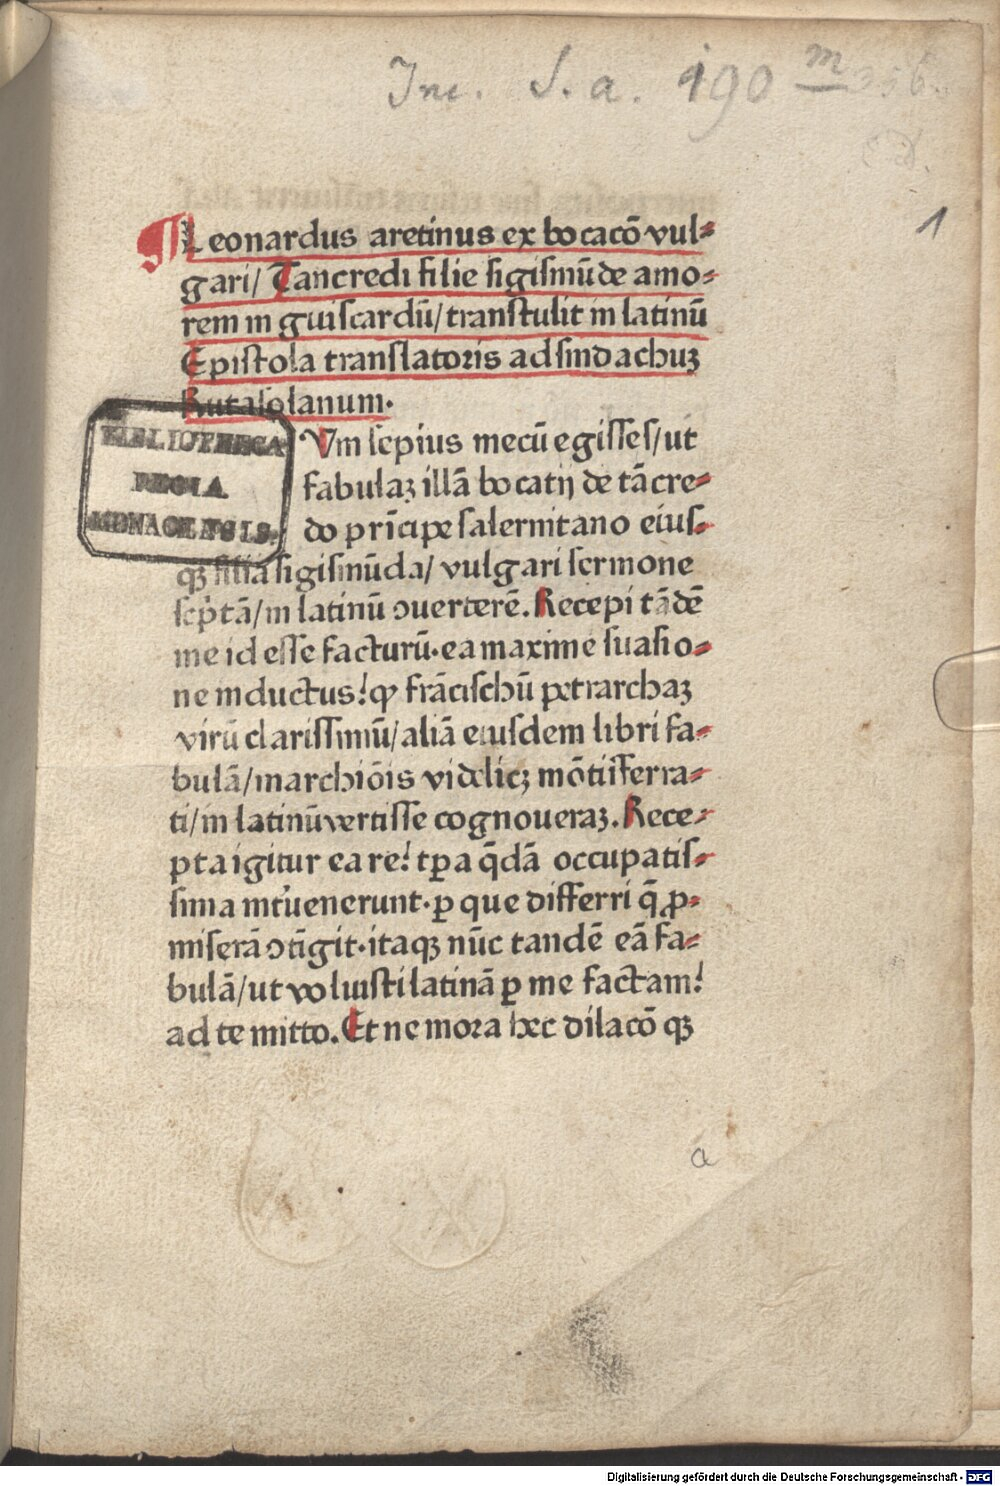 Inc. S. a. 190 m 356.
1
Leonardus aretinus ex bocacō vul⸗
gari/ Tancredi filie sigismūde amo⸗
rem in guiscardū/ transtulit in latinū
Epistola translatoris ad sindachuʒ
Rutasolanum.
Vm sepius mecū egisses/ ut
fabulaʒ illā bocatij de tācre⸗
do prīcipe salernitano eius⸗
qʒ filia sigismūda/ vulgari sermone
scp̄tā/ in latinū ↄuerterē. Recepi tādē
me id esse facturū. ea maxime suasio⸗
ne inductus! ꝙ frācischū petrarchaʒ
virū clarissimū/ aliā eiusdem libri fa⸗
bulā/ marchiōis videlicʒ mōtisferra⸗
ti/ in latinū vertisse cognoueraʒ. Rece⸗
pta igitur ea re! tꝑa q̄dā occupatis⸗
sima int̄uenerunt. ꝑ que differri q̄ ꝓ⸗
miserā ↄtīgit. itaqʒ nūc tandē eā fa⸗
bulā/ ut voluisti latinā ꝑ me factam!
ad te mitto. Et ne mora hec dilacō qʒ
BIBLIOTHECA
REGIA
MONACENSIS.
a
Digitalisierung gefördert durch die Deutsche Forschungsgemeinschaft - DFG